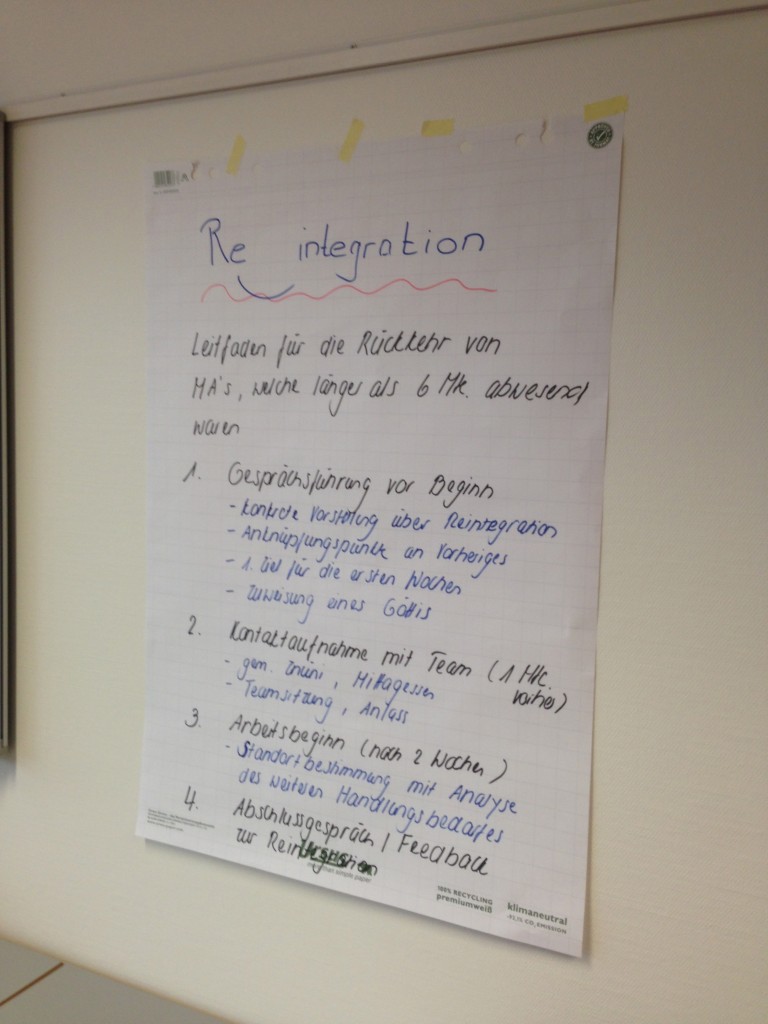 Re integration
Leitfaden für die Rückkehr von
MA's, welche länger als 6 Mte. abwesend
waren
1. Gesprächsführung vor Beginn
- konkrete Vorstellung über Reintegration
- Anknüpfungspunkte an Vorheriges
- 1. Ziel für die ersten Wochen
- Zuweisung eines Göttis
2. Kontaktaufnahme mit Team (1 Mte. vorher)
- gem. Znüni, Mittagessen
- Teamsitzung, Anlass
3. Arbeitsbeginn (nach 2 Wochen)
- Standortbestimmung mit Analyse
des weiteren Handlungsbedarfes
4. Abschlussgespräch / Feedback
zur Reintegration
more than simple paper
100% RECYCLING
premiumweiß
klimaneutral